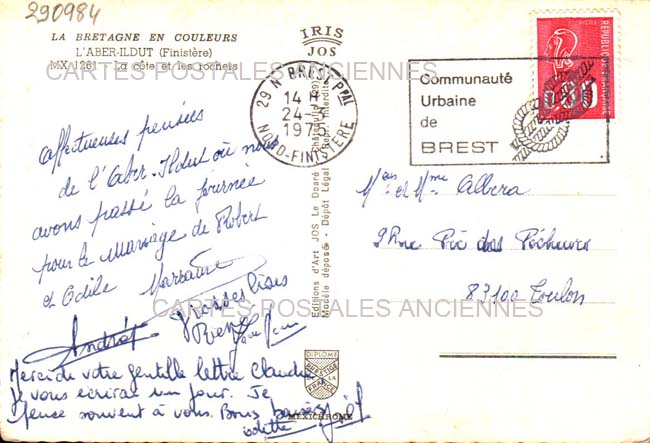 290984
LA BRETAGNE EN COULEURS
L'ABER-ILDUT (Finistère)
MX 1261 La côte et les rochers
IRIS
JOS
CARTES POSTALES ANCIENNES
29 N BREST PPAL
14 H
24-
197
NORD-FINISTERE
Communauté
Urbaine
de
BREST
Affectueuses pensées
de l'Aber-Ildut où nous
avons passé la journée
pour le mariage de Robert
et Odile Marraine
Grosses bises
André
Merci de votre gentille lettre Claudie
Je vous écrirai un jour. Je
pense souvent à vous. Bons baisers
Odette
Editions d'Art JOS Le Doaré
Modèle déposé - Dépôt Légal
et Mme Albera
Rue Pic des Pêcheurs
83100 Toulon
CARTES POSTALES ANCIENNES
DIPLOME
PRESTIGE
DE LA
FRANCE
MEXICHROME